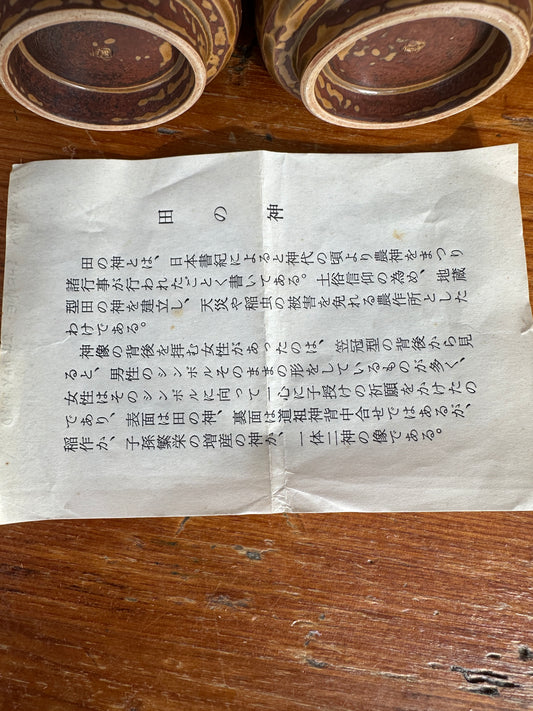 田の神
田の神とは、日本書紀によると神代の頃より農神をまつり
諸行事が行われたごとく書いてある。土俗信仰の為め、地蔵
型田の神を建立し、天災や稲虫の被害を免れる農作所とした
わけである。
神像の背後を拝む女性があったのは、笠冠型の背後から見
ると、男性のシンボルそのままの形をしているものが多く、
女性はそのシンボルに向って一心に子授けの祈願をかけたの
であり、表面は田の神、裏面は道祖神背中合せではあるが、
稲作か、子孫繁栄の増産の神か、一体二神の像である。